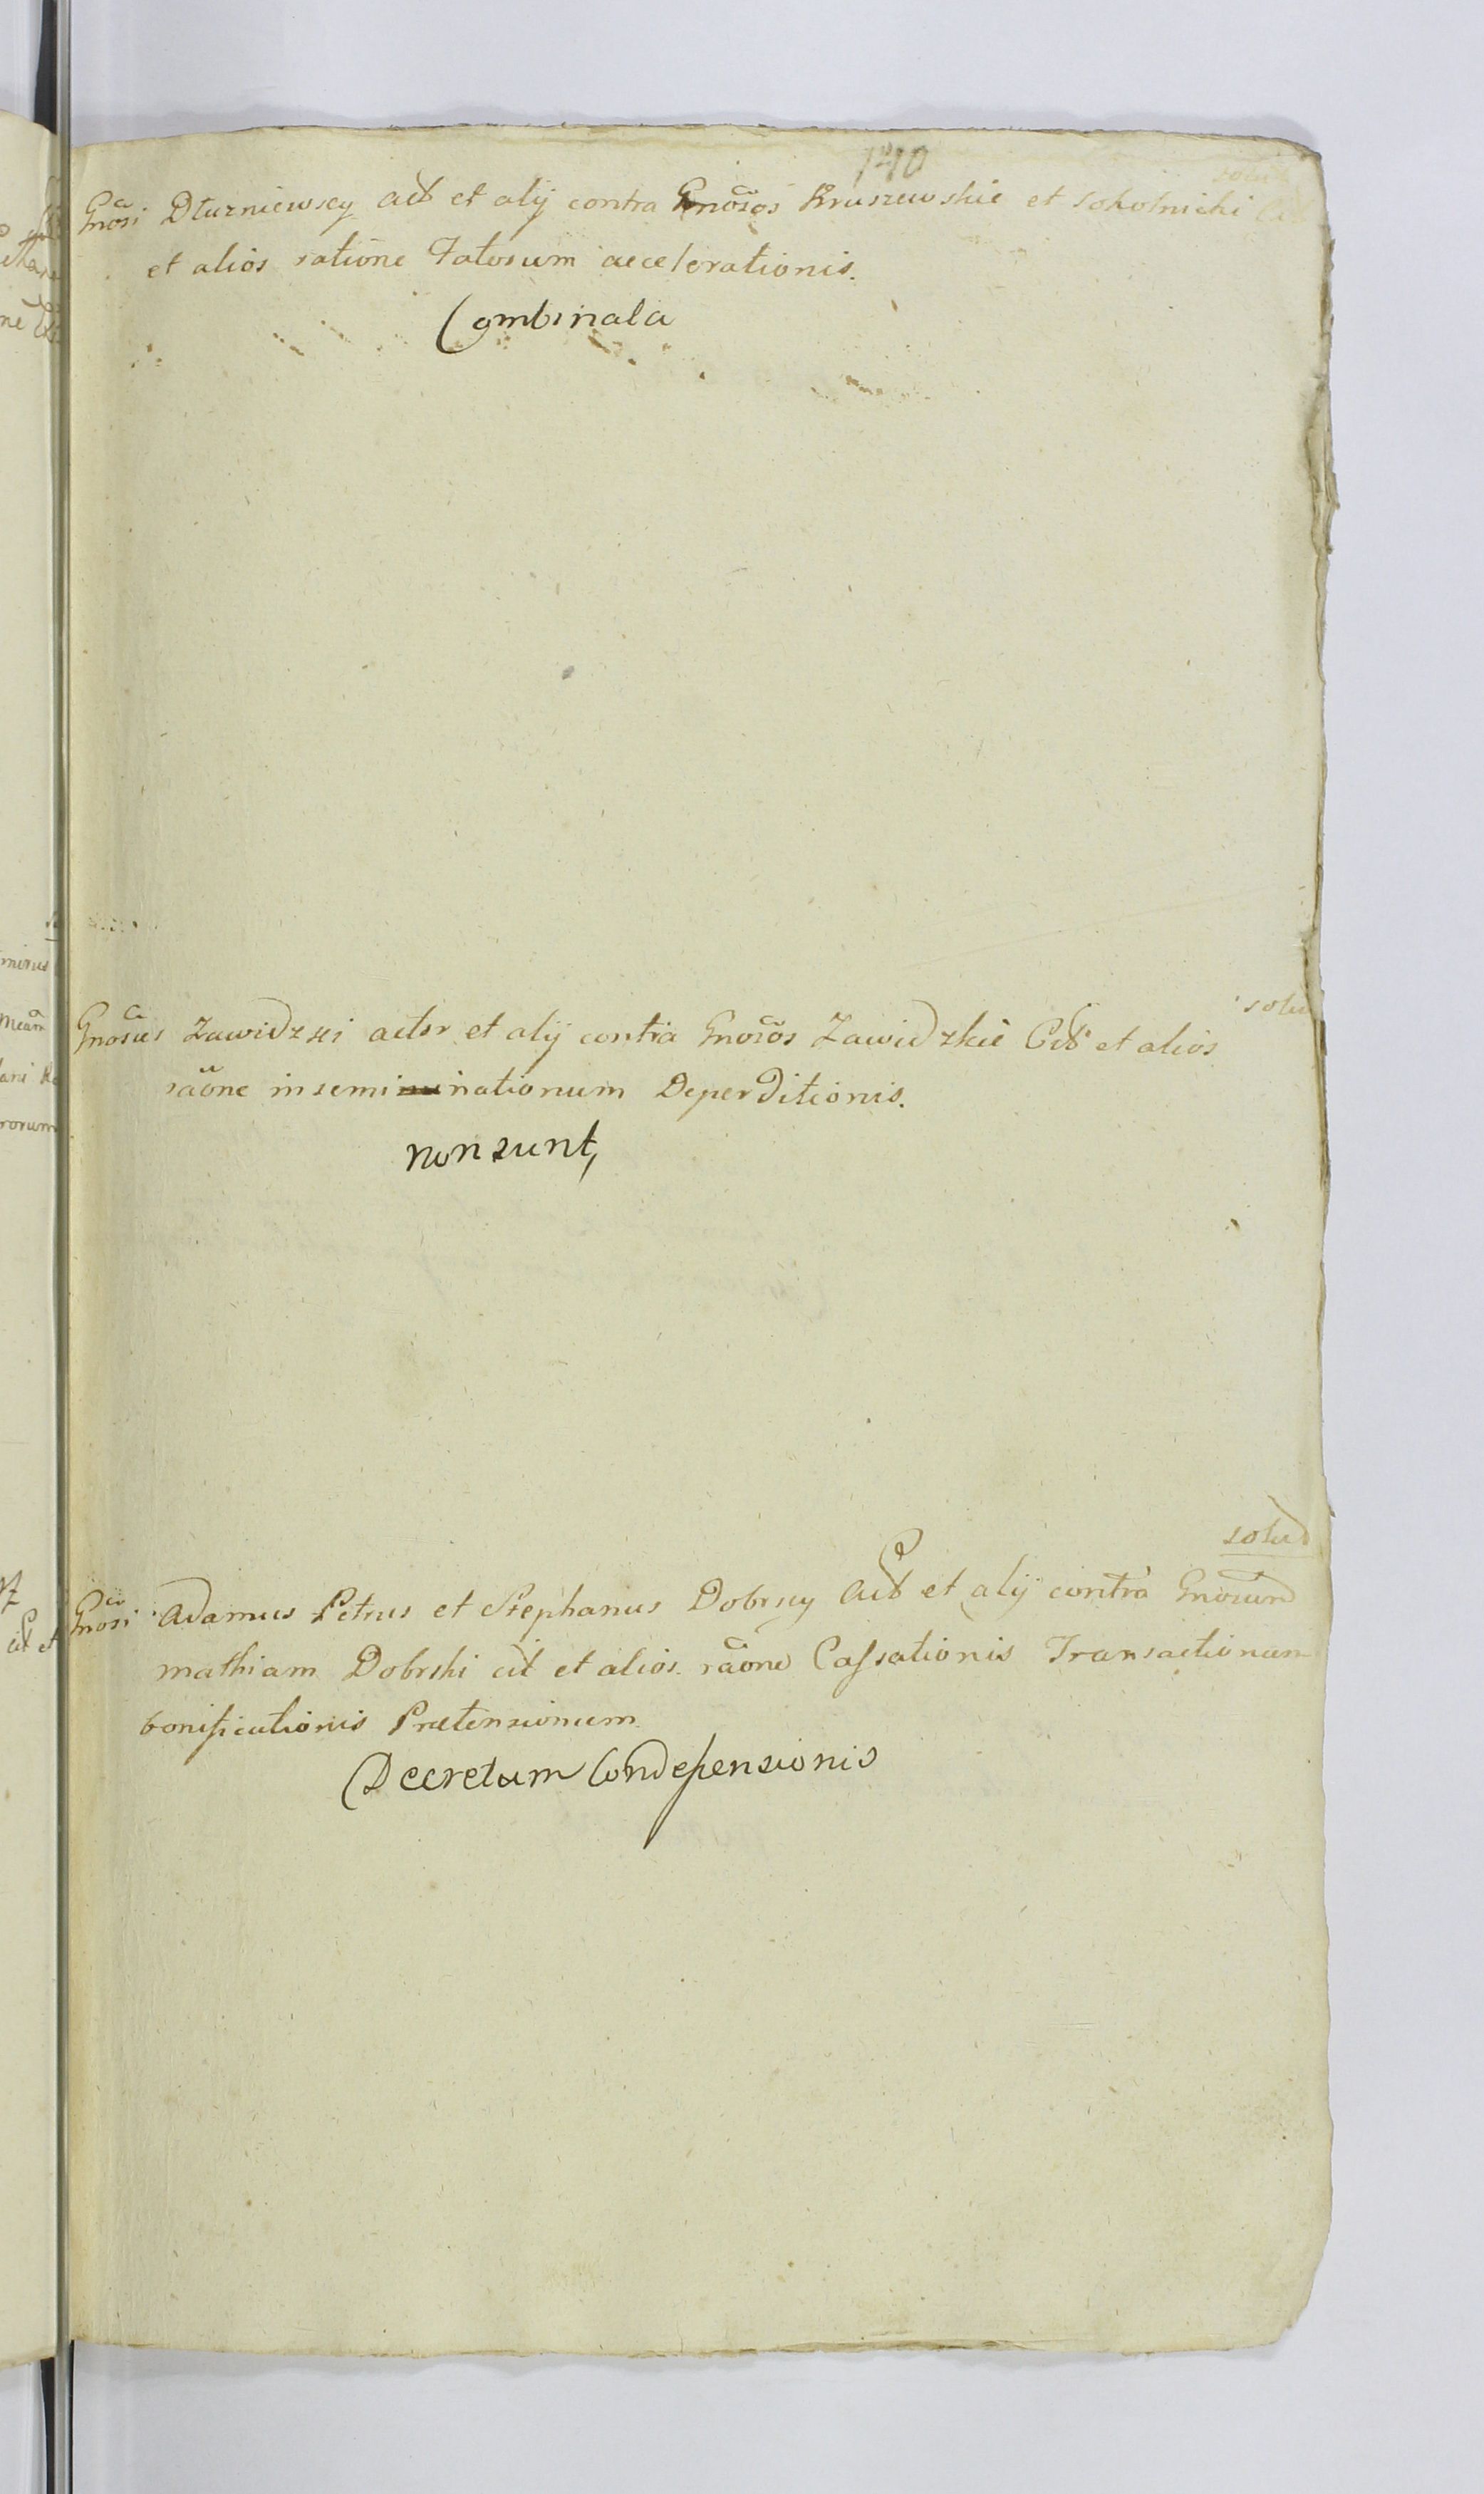 140
solu
Gnosi Dłuzniewscy act et alij contra Gnosos Kruszewskie et Sokolnicki Cit
et alios ratione Fatorum accelerationis.
Combinata
solu
Gnosus Zawidzki actor et alij contra Gnosos Zawidzkie Cit et alios
raone inseminationum Deperditionis.
non sunt,
solud
Gnosi Adamus Petrus et Stephanus Dobrscy Act et alij contra Gnosum
mathiam Dobrski cit et alios raone Cassationis Transactionum
bonificationis Praetensionum
Decretum Condescensionis